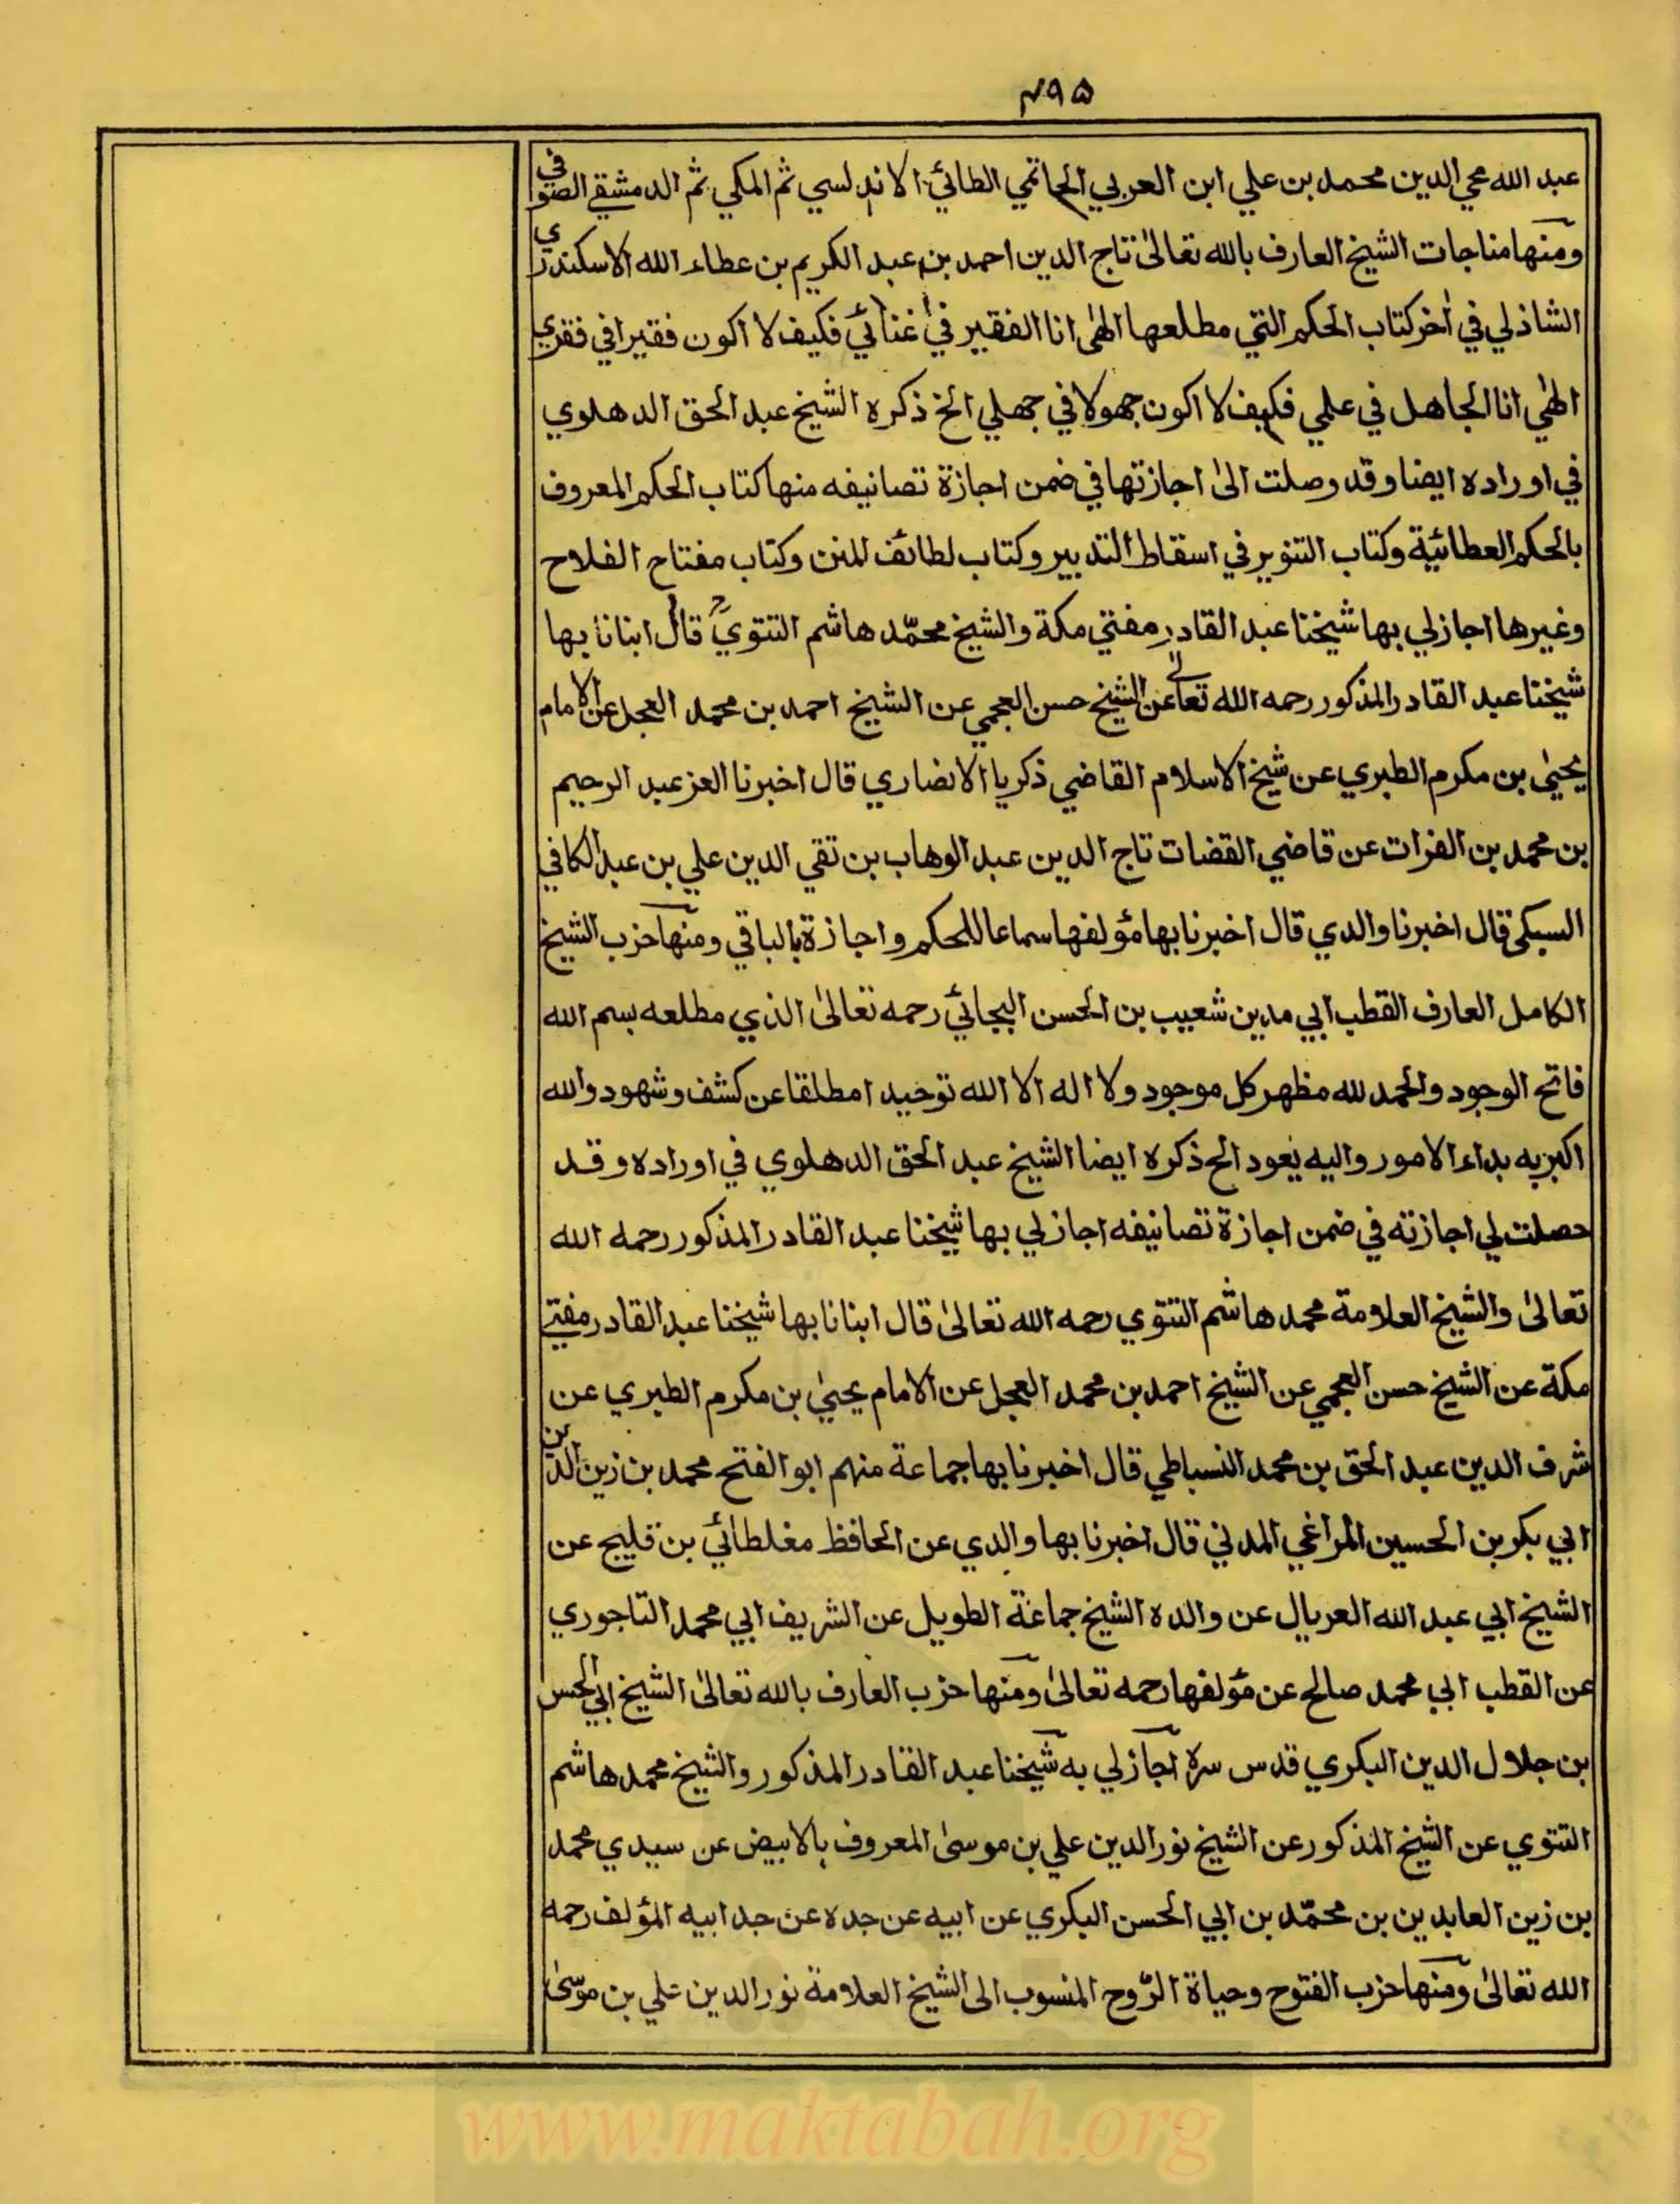 ٢٩٥
عبد الله محي الدين محمد بن علي ابن العربي الحاتمي الطائي الاندلسي ثم المكي ثم الدمشقي الصوفي
ومنها مناجات الشيخ العارف بالله تعالىٰ تاج الدين احمد بن عبد الكريم بن عطاء الله الاسكندري
الشاذلي في اٰخر كتاب الحكم التي مطلعها الهٰي انا الفقير في غنائي فكيف لا اكون فقيرا في فقري
الهٰي انا الجاهل في علمي فكيف لا اكون جهولا في جهلي الخ ذكره الشيخ عبد الحق الدهلوي
في اوراده ايضا وقد وصلت الىٰ اجازتها في ضمن اجازة تصانيفه منها كتاب الحكم المعروف
بالحكم العطائية وكتاب التنوير في اسقاط التدبير وكتاب لطائف المنن وكتاب مفتاح الفلاح
وغيرها اجازلي بها شيخنا عبد القادر مفتي مكة والشيخ محمّد هاشم التتوي قال ابنانا بها
شيخنا عبد القادر المذكور رحمه الله تعالى عن الشيخ حسن العجمي عن الشيخ احمد بن محمد العجل عن الامام
يحيىٰ بن مكرم الطبري عن شيخ الاسلام القاضي ذكريا الانصاري قال اخبرنا العز عبد الرحيم
بن محمد بن الفرات عن قاضي القضات تاج الدين عبد الوهاب بن تقي الدين علي بن عبد الكافي
السبكي قال اخبرنا والدي قال اخبرنا بها مؤلفها سماعا للحكم واجازة بالباقي ومنها حزب الشيخ
الكامل العارف القطب ابي مدين شعيب بن الحسن البجائي رحمه تعالىٰ الذي مطلعه بسم الله
فاتح الوجود والحمد لله مظهر كل موجود ولا اله الا الله توحيدا مطلقا عن كشف وشهود والله
اكبر به بداء الامور واليه يعود الخ ذكره ايضا الشيخ عبد الحق الدهلوي في اوراده وقد
حصلت لي اجازته في ضمن اجازة تصانيفه اجازلي بها شيخنا عبد القادر المذكور رحمه الله
تعالىٰ والشيخ العلامة محمد هاشم التتوي رحمه الله تعالىٰ قال ابنانا بها شيخنا عبد القادر مفتي
مكة عن الشيخ حسن العجمي عن الشيخ احمد بن محمد العجل عن الامام يحيىٰ بن مكرم الطبري عن
شرف الدين عبد الحق بن محمد النسباطي قال اخبرنا بها جماعة منهم ابو الفتح محمد بن زين الدين
ابي بكر بن الحسين المراغي المدني قال اخبرنا بها والدي عن الحافظ مغلطائي بن قليج عن
الشيخ ابي عبد الله العربال عن والده الشيخ جماعة الطويل عن الشريف ابي محمد التاجوري
عن القطب ابي محمد صالح عن مؤلفها رحمه تعالىٰ ومنها حزب العارف بالله تعالىٰ الشيخ ابي الحسن
بن جلال الدين البكري قدس سره اجازلي به شيخنا عبد القادر المذكور والشيخ محمد هاشم
التتوي عن الشيخ المذكور عن الشيخ نور الدين علي بن موسىٰ المعروف بالابيض عن سيدي محمد
بن زين العابدين بن محمّد بن ابي الحسن البكري عن ابيه عن جده عن جد ابيه المؤلف رحمه
الله تعالىٰ ومنها حزب الفتوح وحياة الرّوح المنسوب الى الشيخ العلامة نور الدين علي بن موسىٰ
www.maktabah.org